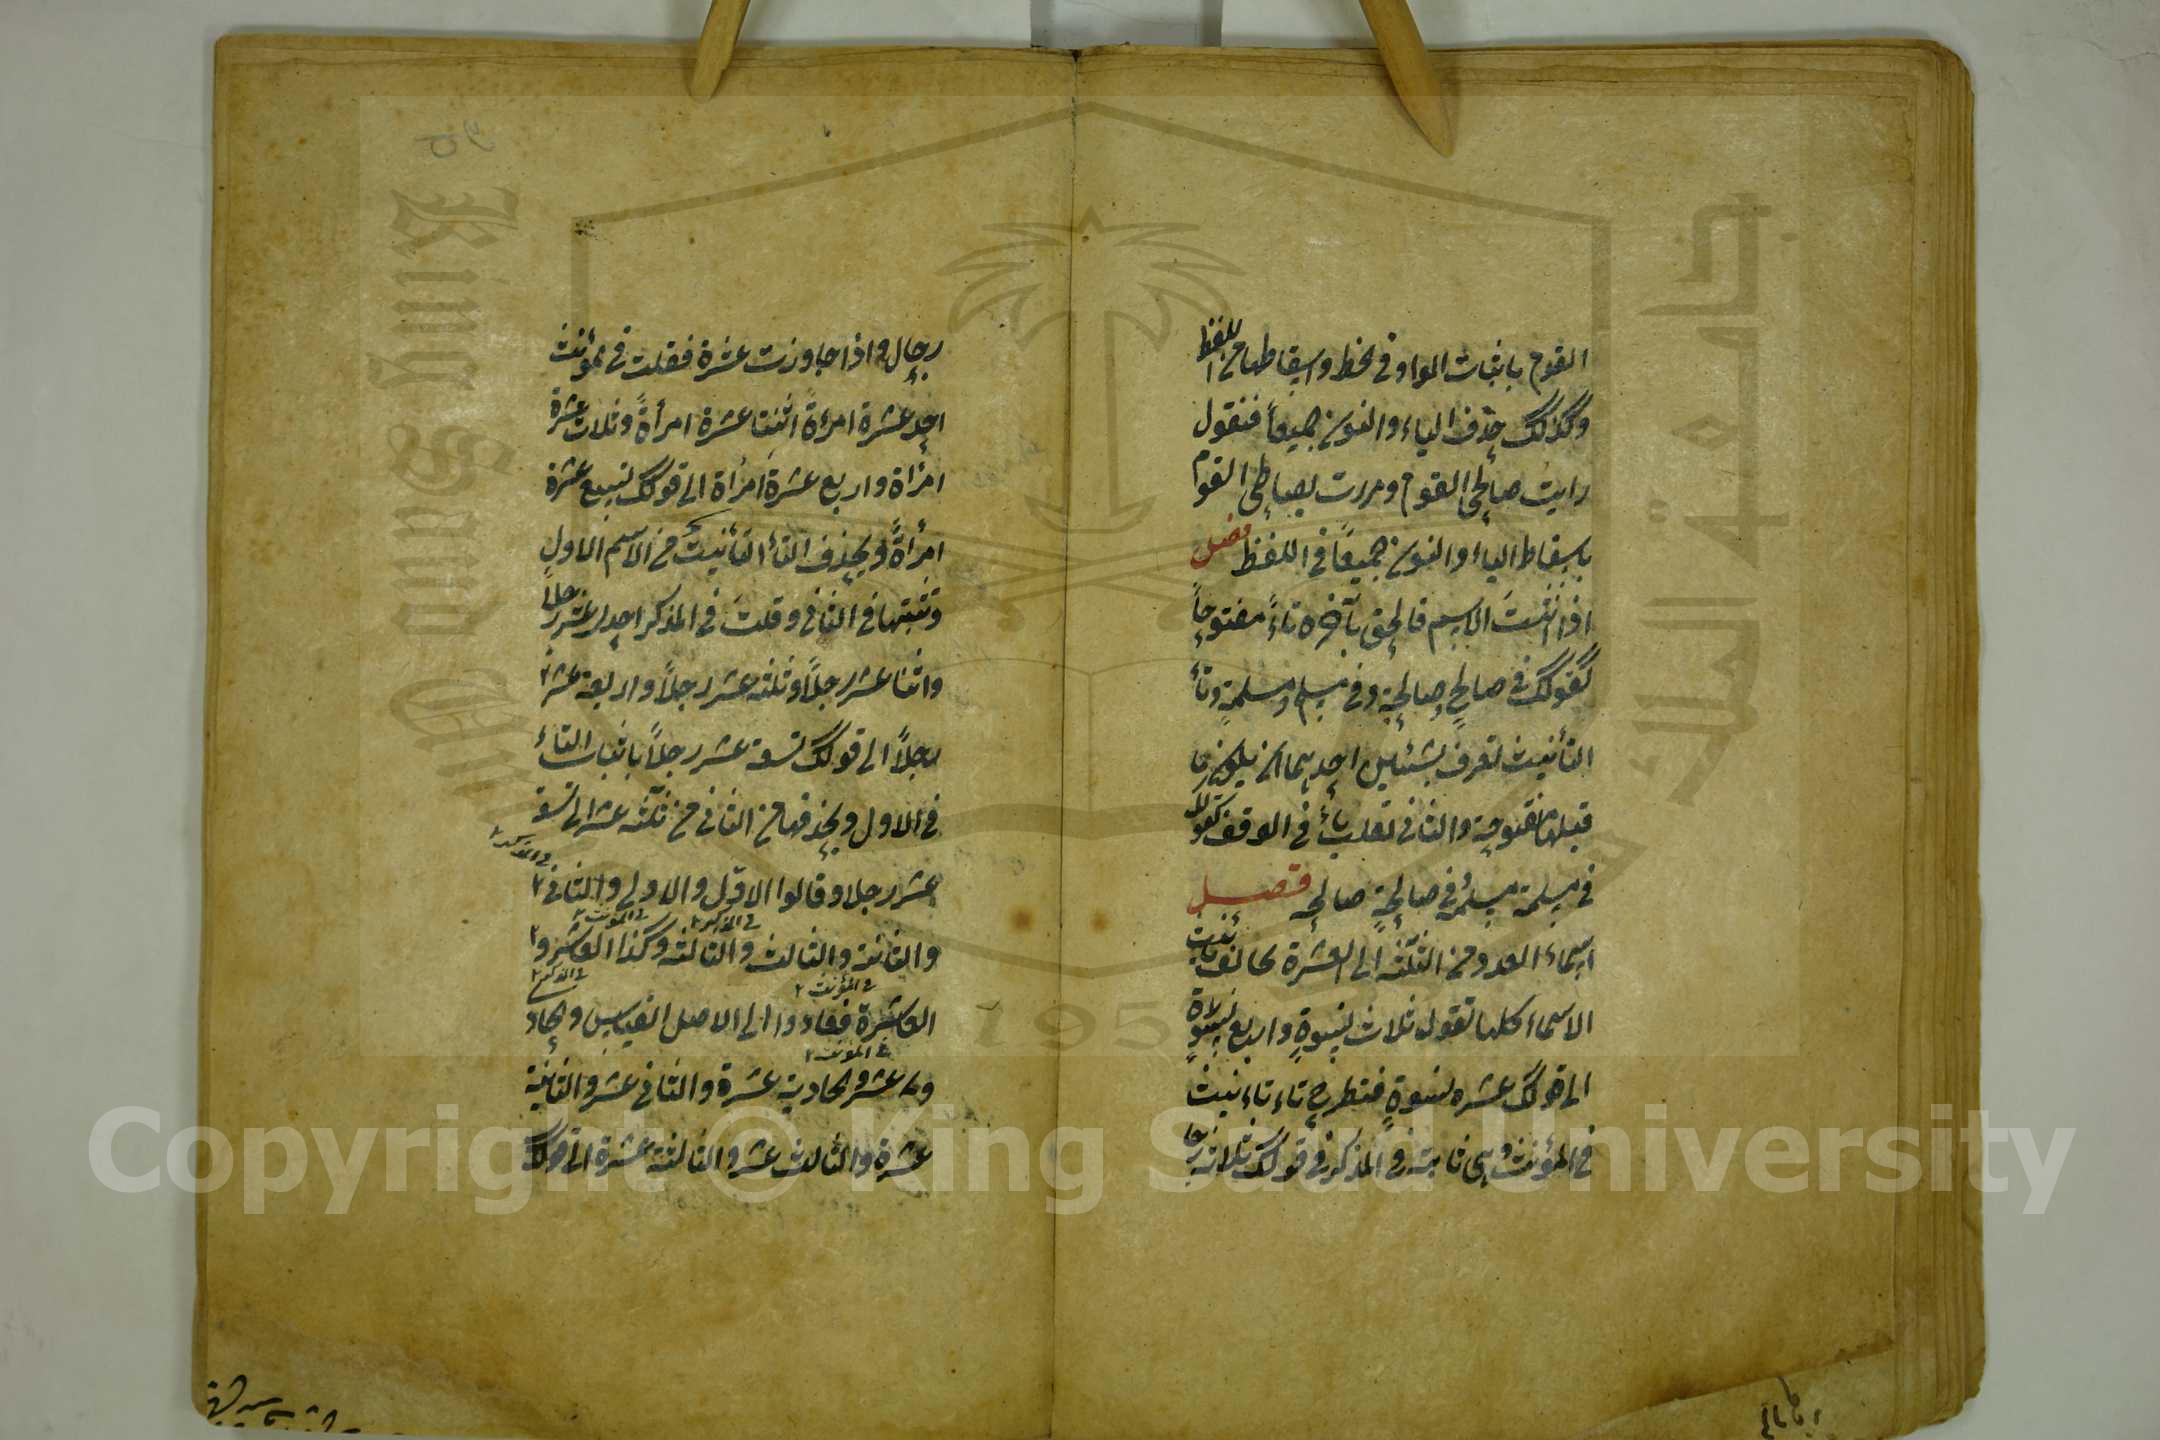 القوم باثبات الواو في الخط واسقاطها في اللفظ
وكذلك حذف الياء والنون جميعاً فتقول
رايت صالحي القوم ومررت بصالحي القوم
باسقاط الياء والنون جميعاً في اللفظ فصل
اذا انثت الاسم فالحق بآخره تاءً مفتوحاً
كقولك في صالحٍ وصالحة وفي مسلم ومسلمةٍ وتاء
التأنيث تعرف بشيئين احدهما ان يكون ما
قبلها مفتوحة والثاني تقلب هاءً في الوقف كقولك
في مسلمة مسلمه في صالحةٍ صالحه فصل
اسماء العدد من الثلثة الى العشرة يخالف تأنيث
الاسماء كلها تقول ثلاث نسوةٍ واربع نسوةٍ
الى قولك عشره نسوةٍ فتطرح تاء تاءنيث
في المؤنث وهي ثابتة في المذكر في قولك ثلاثة رجا
رجال واذا جاوزت عشرة فقلت في المؤنث
احد عشرة امرءةً اثنتا عشرة امرأةً وثلاث عشرة
امرأة واربع عشرة امرأة الى قولك تسع عشرة
امرأةً ويحذف التاء التأنيث من الاسم الاول
وتثبتها في الثاني وقلتَ في المذكر احد عشر رجلاً
واثنا عشر رجلاً وثلثة عشر رجلاً واربعة عشر
رجلاً الى قولك تسعة عشر رجلاً باثبات التاء
في الاول ويحذفها من الثاني من ثلثة عشر الى تسعة
عشر رجلا وقالوا الاوّل والاولى والثاني
في المذكر
والثانية والثالث والثالثة وكذا العاشر و
في المذكر في المؤنث
العاشرة فعادوا الى الاصل القياس والحاد
في المؤنث في المذكر
عشر والحادية عشرة والثاني عشر والثانية
في المؤنث
عشرة والثالث عشر والثالثة عشرة الى قولك
جامعة الملك سعود
King Saud University
195
Copyright © King Saud University